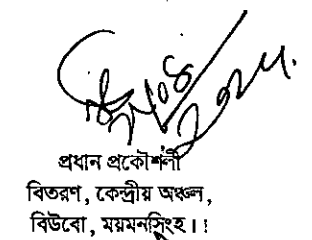 প্রধান প্রকৌশলী
বিতরণ, কেন্দ্রীয় অঞ্চল,
বিউবো, ময়মনসিংহ।।